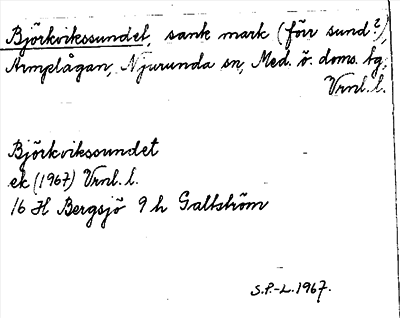 Björkvikssundet, sank mark (förr sund?),
Armplågan, Njurunda sn, Med. ö. doms. tg,
Vrnl. l.
Björkvikssundet
ek (1967) Vrnl. l.
16 H Bergsjö 9 h Galtström
S.P.-L. 1967.